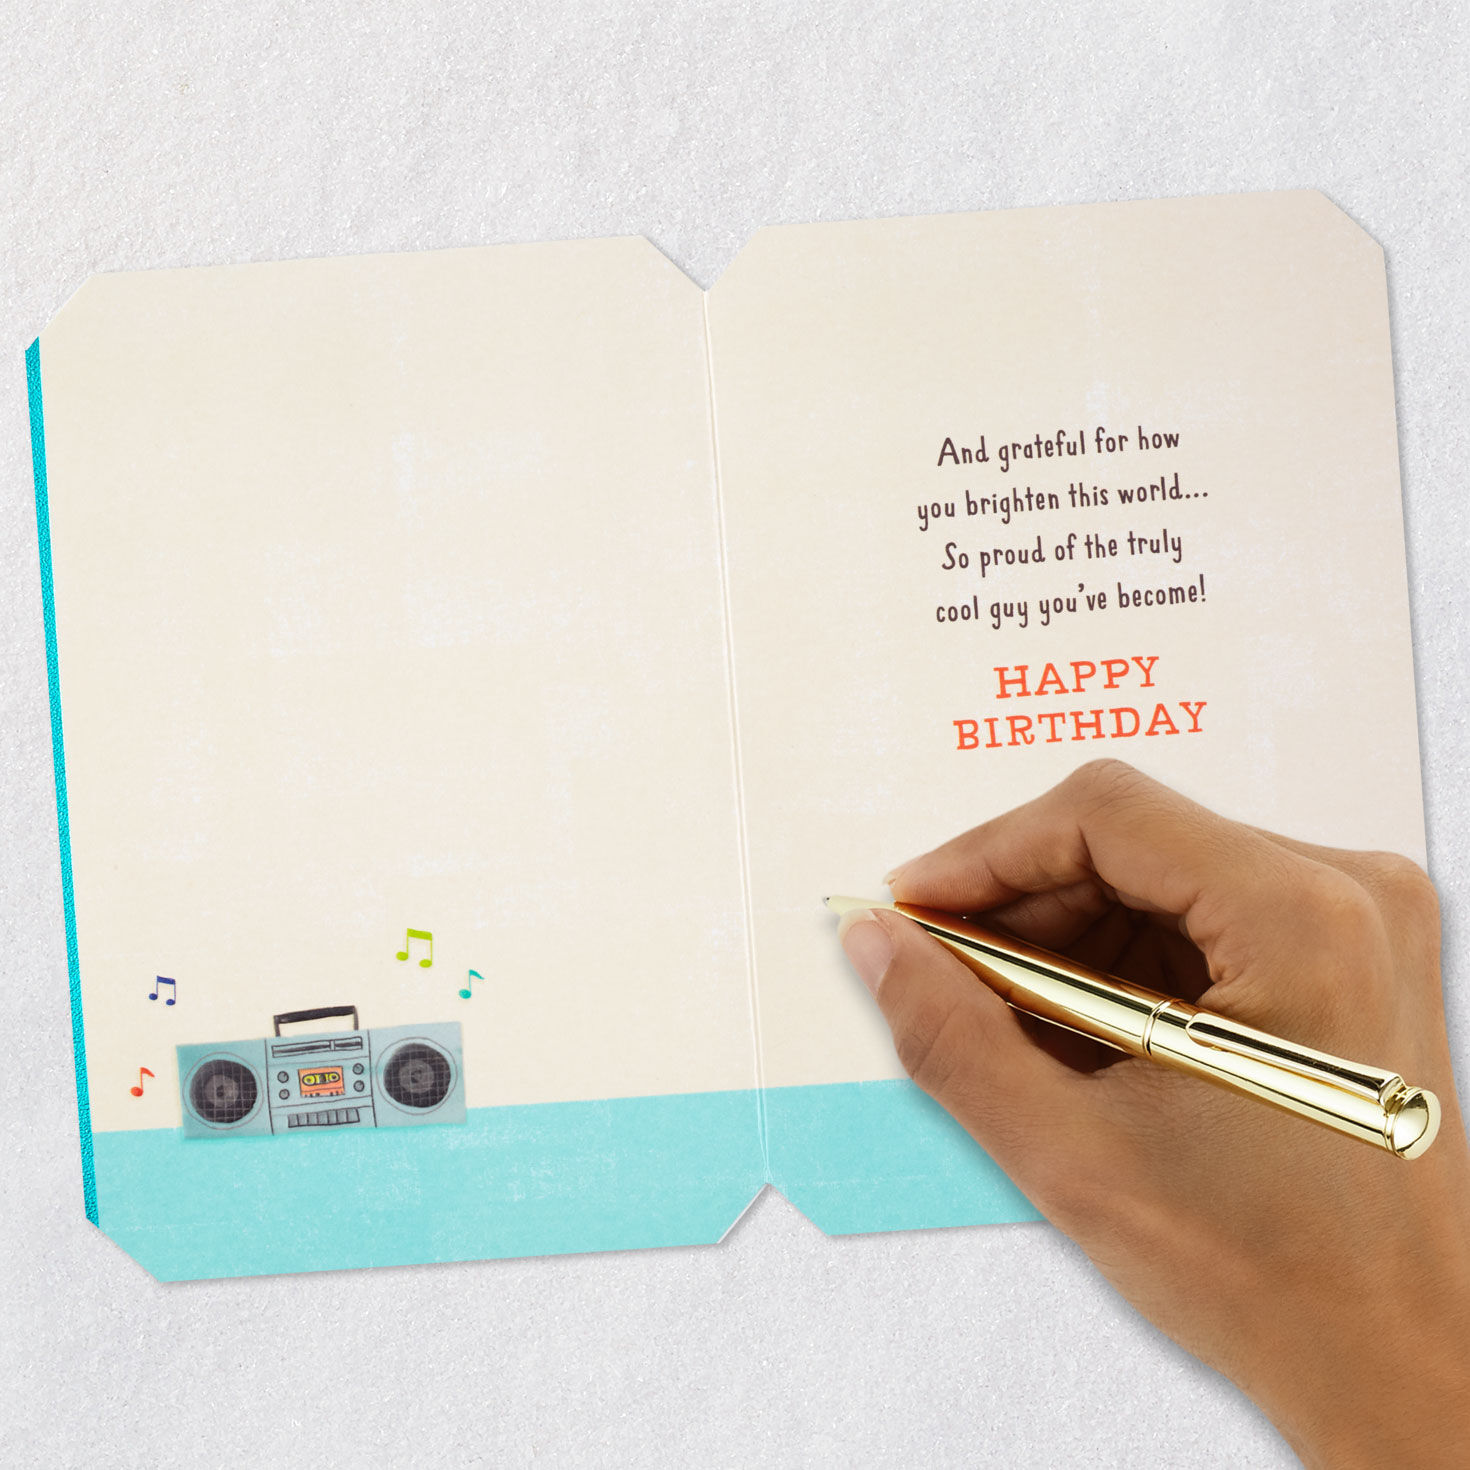 And grateful for how
you brighten this world...
So proud of the truly
cool guy you've become!
HAPPY
BIRTHDAY